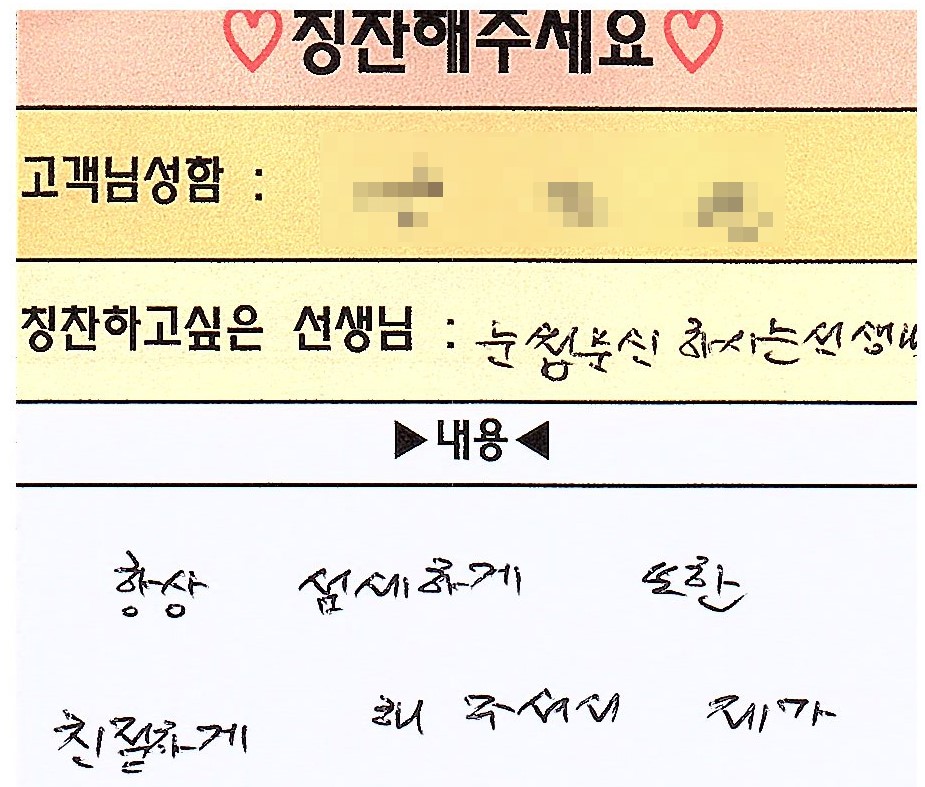 ♡칭찬해주세요♡
고객님성함 :
칭찬하고싶은 선생님 : 눈썹문신 하시는선생
▶내용◀
항상 섬세하게 또한
친절하게 해 주셔서 제가